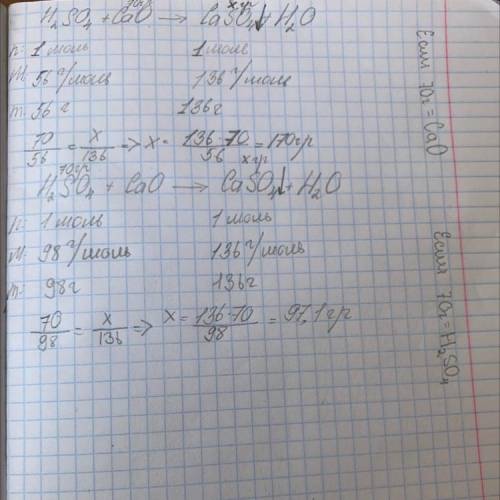 70гр xгр
H₂SO₄ + CaO → CaSO₄↓ + H₂O
n: 1 моль 1 моль
M: 56 г/моль 136 г/моль
m: 56 г 136 г
70/56 = x/136 => x = 136·70/56 = 170 гр
70гр xгр
H₂SO₄ + CaO → CaSO₄↓ + H₂O
n: 1 моль 1 моль
M: 98 г/моль 136 г/моль
m: 98 г 136 г
70/98 = x/136 => x = 136·70/98 = 97,1 гр
Если 70г = CaO
Если 70г = H₂SO₄